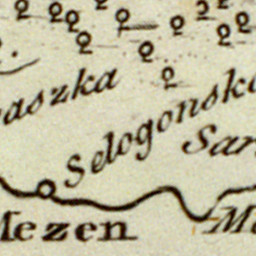 aszka
Selogonsk
Sar
Mezen
M